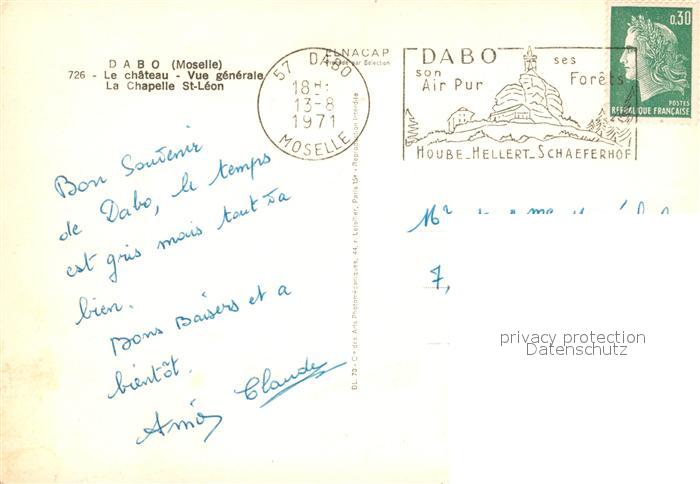 DABO (Moselle)
726 - Le château - Vue générale
La Chapelle St-Léon
ELNACAP
Procédé par Sélection
57 DABO
18H
13-8
1971
MOSELLE
DABO
son
Air Pur
ses
Forêts
HOUBE_HELLERT_SCHAEFERHOF
0,30
POSTES
REPUBLIQUE FRANÇAISE
Bon Souvenir
de Dabo, le temps
est gris mais tout va
bien.
Bons Baisers et a
bientôt.
Claude
DL. 70 - Cie des Arts Photomécaniques, 44, r. Letellier, Paris 15e - Reproduction Interdite
Mr
7,
privacy protection
Datenschutz